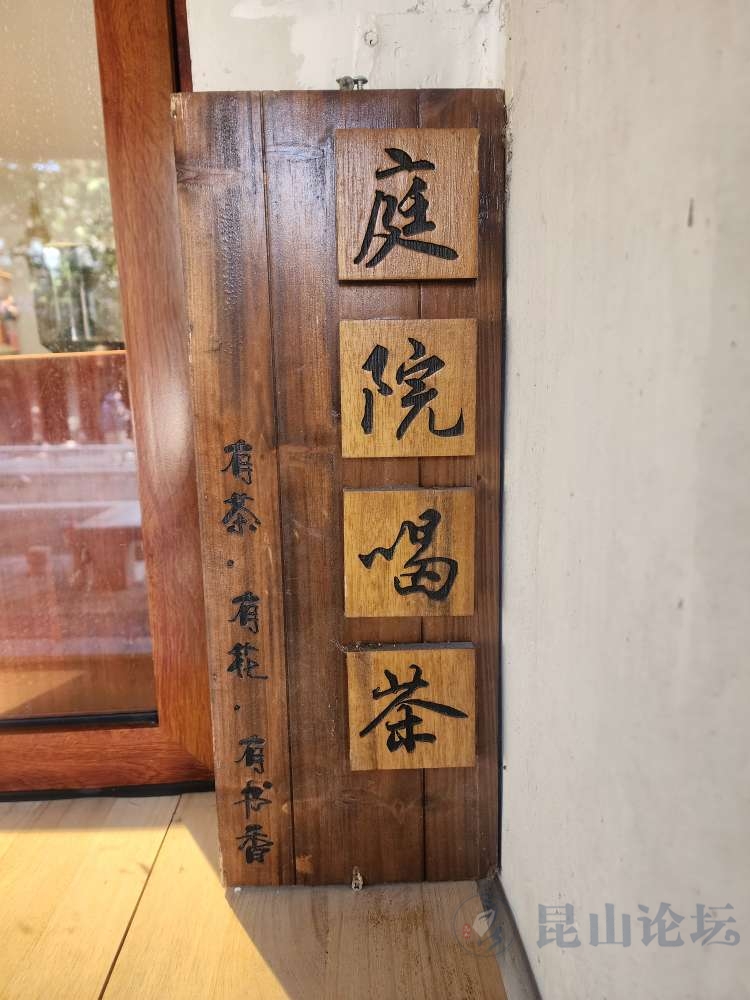 庭院喝茶
有茶·有花·有书香
昆山论坛